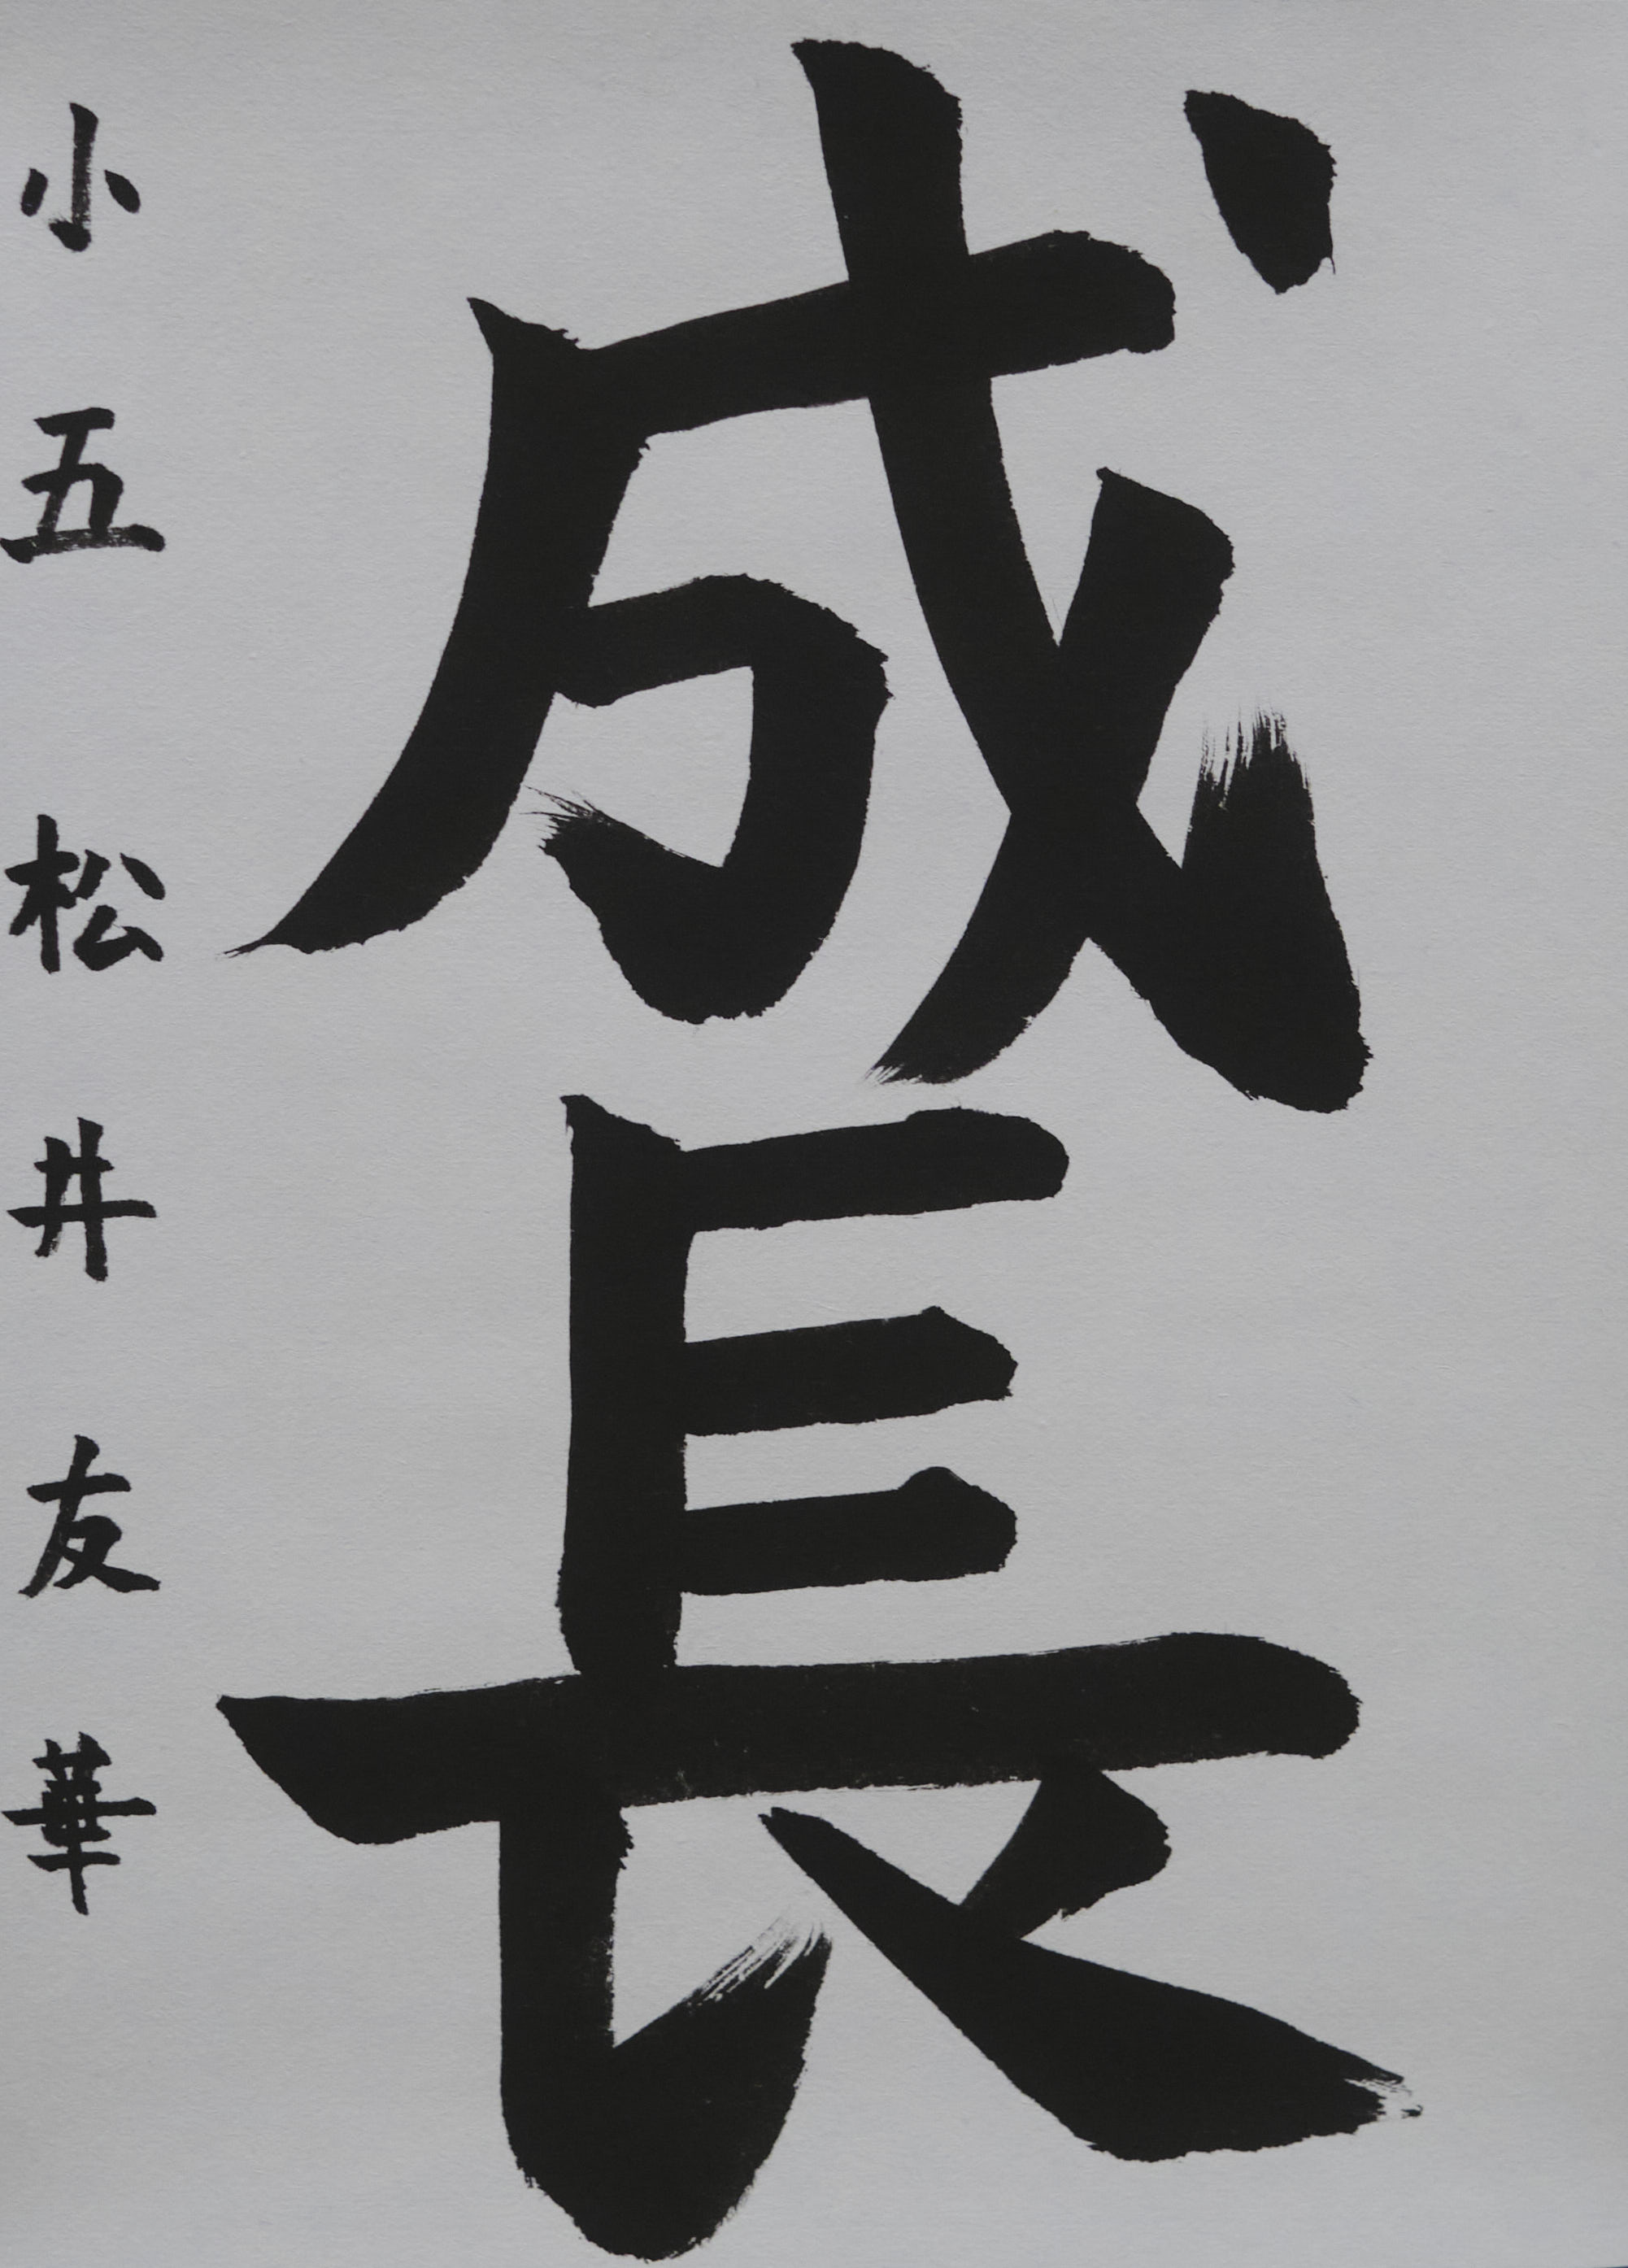 成長
小五 松井友華